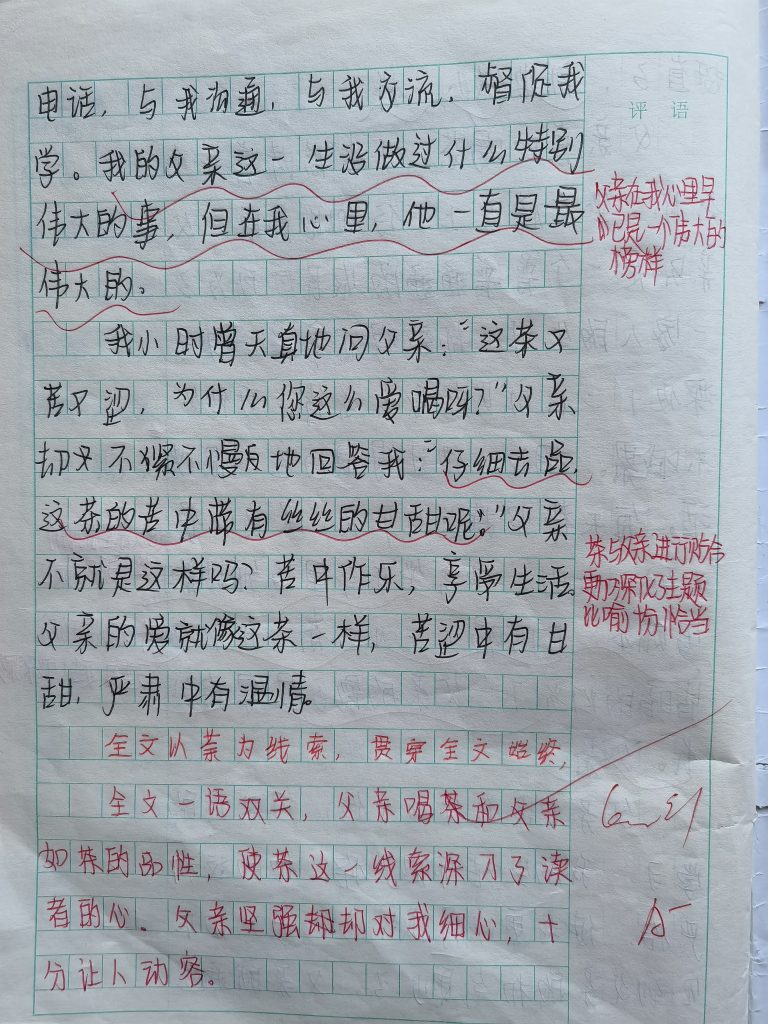 评 语
电话，与我沟通，与我交流，督促我
学。我的父亲这一生没做过什么特别
伟大的事，但在我心里，他一直是最
伟大的。
父亲在我心里早
已是一个伟大的
榜样
我小时曾天真地问父亲：“这茶又
苦又涩，为什么您这么爱喝呀？”父亲
却又不紧不慢地回答我：“仔细去品，
这茶的苦中带有丝丝的甘甜呢。”父亲
不就是这样吗？苦中作乐，享受生活。
父亲的爱就像这茶一样，苦涩中有甘
甜，严肃中有温情。
茶与父亲进行贴合
更加深化了主题
比喻恰当
全文以茶为线索，贯穿全文始终，
全文一语双关，父亲喝茶和父亲
如茶的品性，使茶这一线索深刀了读
者的心。父亲坚强却却对我细心，十
分让人动容。
A-